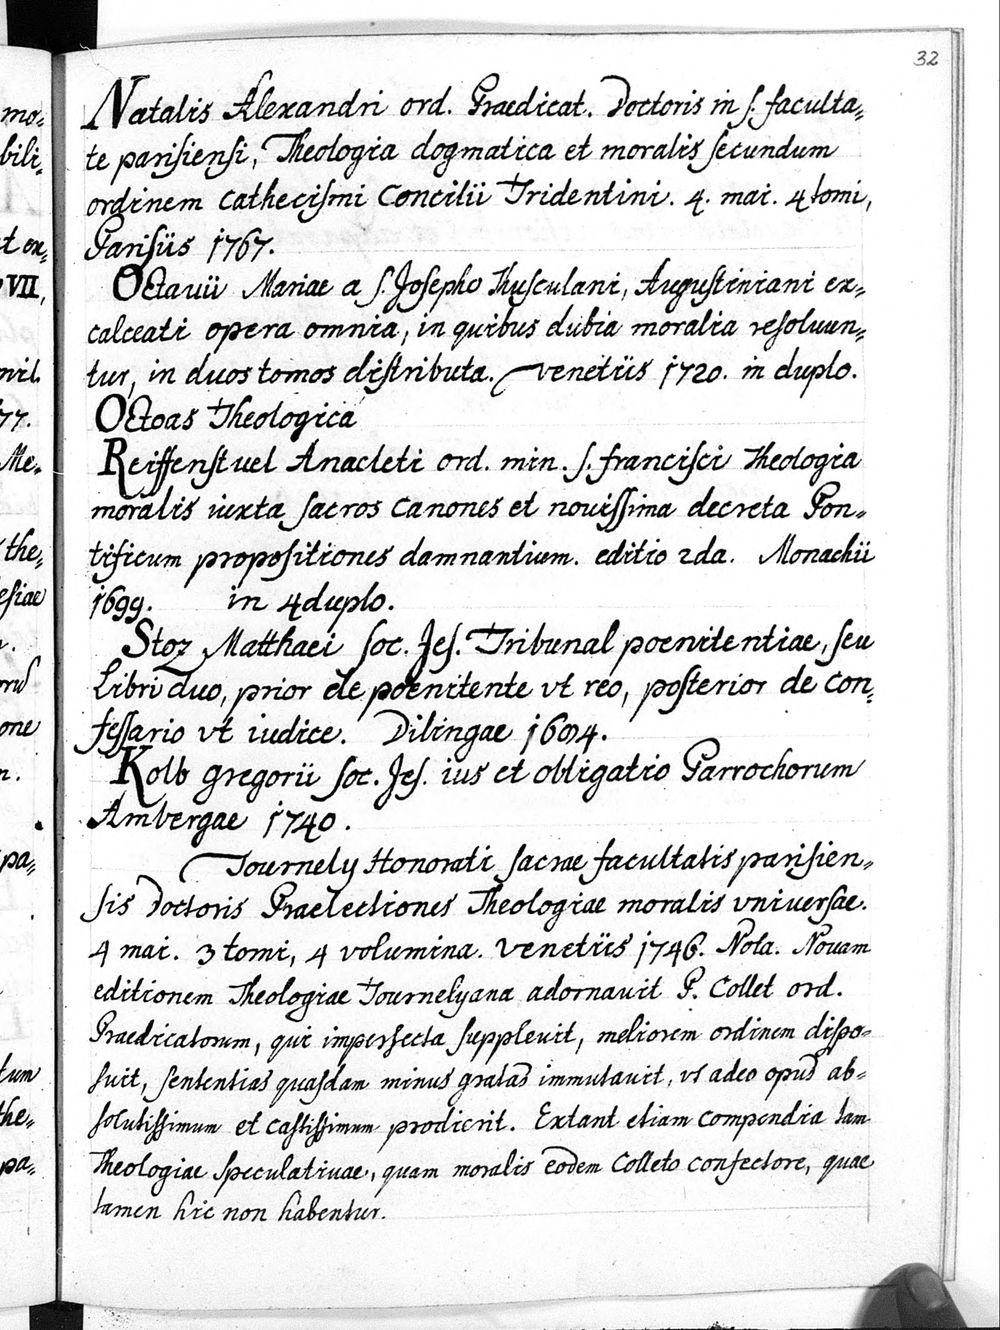 32
Natalis Alexandri ord. Praedicat. Doctoris in s. faculta-
te parisiensi, Theologia dogmatica et moralis secundum
ordinem cathecismi Concilii Tridentini. 4. mai. 4 tomi,
Parisiis 1767.
Octavii Mariae a S. Josepho Thusculani, Augustiniani ex-
calceati opera omnia, in quibus dubia moralia resoluun-
tur, in duos tomos distributa. Venetiis 1720. in duplo.
Octoas Theologica
Reiffenstuel Anacleti ord. min. s. francisci Theologia
moralis iuxta sacros Canones et nouissima decreta Pon-
tificum propositiones damnantium. editio 2da. Monachii
1699. in 4duplo.
Stoz Matthaei Soc. Jes. Tribunal poenitentiae, seu
Libri duo, prior de poenitente vt reo, posterior de con-
fessario vt iudice. Dilingae 1694.
Kolb gregorii Soc. Jes. ius et obligatio Parrochorum
Ambergae 1740.
Tournely Honorati sacrae facultatis parisien-
sis Doctoris Praelectiones Theologiae moralis vniuersae.
4 mai. 3 tomi, 4 volumina. Venetiis 1746. Nota. Nouam
editionem Theologiae Tournelyana adornauit P. Collet ord.
Praedicatorum, qui imperfecta suppleuit, meliorem ordinem dispo-
suit, sententias quasdam minus gratas immutauit, vt adeo opus ab-
solutissimum et castissimum prodierit. Extant etiam compendia tam
Theologiae speculatiuae, quam moralis eodem Colleto confectore, quae
tamen hic non habentur.
mo-
bili-
t ex-
VII,
77.
Me-
the-
esiae
one
pa-
tum
the-
pa-